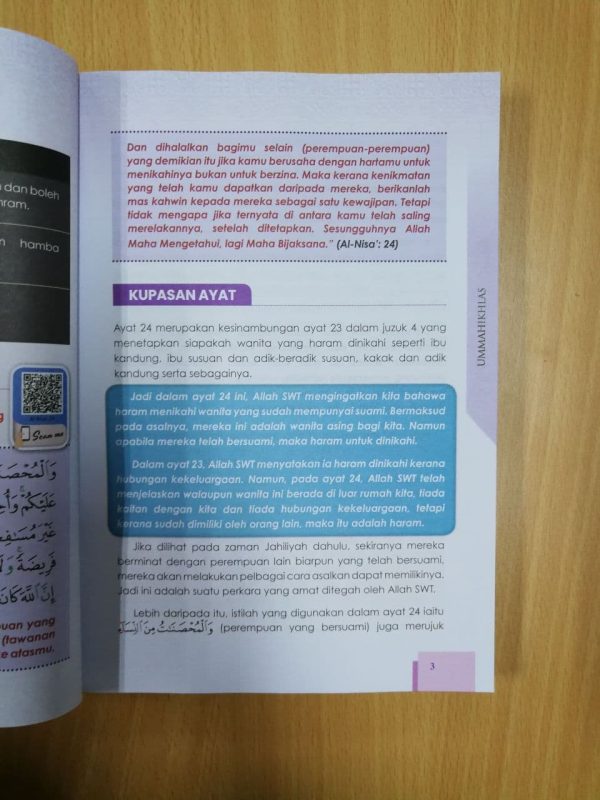 u dan boleh
ram.
hamba
Scan me
وَالْمُحْصَ
عَلَيْكُمْ ۚ وَأُحِ
غَيْرَ مُسَافِ
فَرِيضَةً ۚ وَلَ
إِنَّ اللَّهَ كَانَ
uan yang
(tawanan
e atasmu.
Dan dihalalkan bagimu selain (perempuan-perempuan)
yang demikian itu jika kamu berusaha dengan hartamu untuk
menikahinya bukan untuk berzina. Maka kerana kenikmatan
yang telah kamu dapatkan daripada mereka, berikanlah
mas kahwin kepada mereka sebagai satu kewajipan. Tetapi
tidak mengapa jika ternyata di antara kamu telah saling
merelakannya, setelah ditetapkan. Sesungguhnya Allah
Maha Mengetahui, lagi Maha Bijaksana.” (Al-Nisa’: 24)
KUPASAN AYAT
Ayat 24 merupakan kesinambungan ayat 23 dalam juzuk 4 yang
menetapkan siapakah wanita yang haram dinikahi seperti ibu
kandung, ibu susuan dan adik-beradik susuan, kakak dan adik
kandung serta sebagainya.
Jadi dalam ayat 24 ini, Allah SWT mengingatkan kita bahawa
haram menikahi wanita yang sudah mempunyai suami. Bermaksud
pada asalnya, mereka ini adalah wanita asing bagi kita. Namun
apabila mereka telah bersuami, maka haram untuk dinikahi.
Dalam ayat 23, Allah SWT menyatakan ia haram dinikahi kerana
hubungan kekeluargaan. Namun, pada ayat 24, Allah SWT telah
menjelaskan walaupun wanita ini berada di luar rumah kita, tiada
kaitan dengan kita dan tiada hubungan kekeluargaan, tetapi
kerana sudah dimiliki oleh orang lain, maka itu adalah haram.
Jika dilihat pada zaman Jahiliyah dahulu, sekiranya mereka
berminat dengan perempuan lain biarpun yang telah bersuami,
mereka akan melakukan pelbagai cara asalkan dapat memilikinya.
Jadi ini adalah suatu perkara yang amat ditegah oleh Allah SWT.
Lebih daripada itu, istilah yang digunakan dalam ayat 24 iaitu
وَالْمُحْصَنَاتُ مِنَ النِّسَاءِ (perempuan yang bersuami) juga merujuk
UMMAHIKHLAS
3